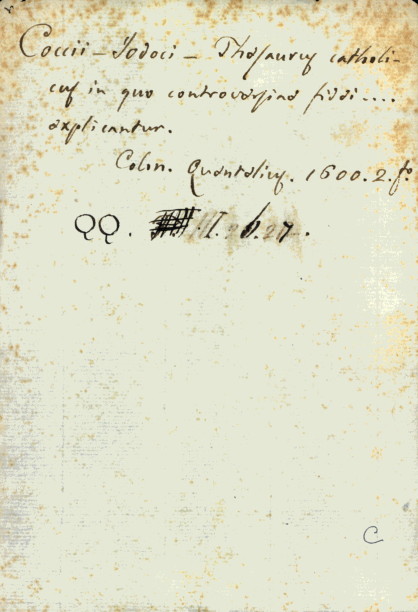 Coccii – Jodoci – Thesaurus catholi-
cus in quo controversiae fidei ....
explicantur.
Colon. Quentelius. 1600. 2. fo
QQ. I. b. 27.
C